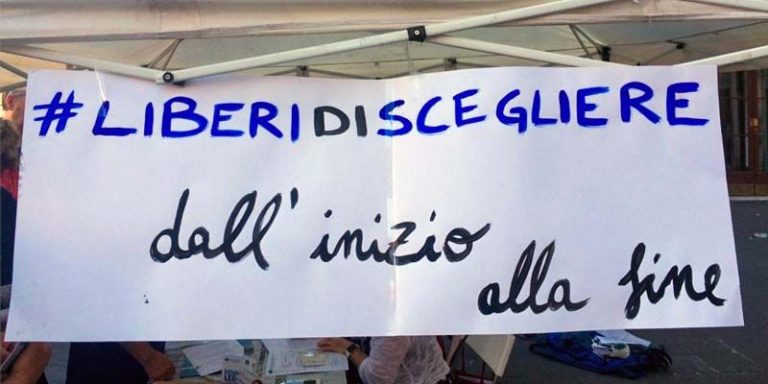 #LIBERIDISCEGLIERE
dall'inizio
alla fine